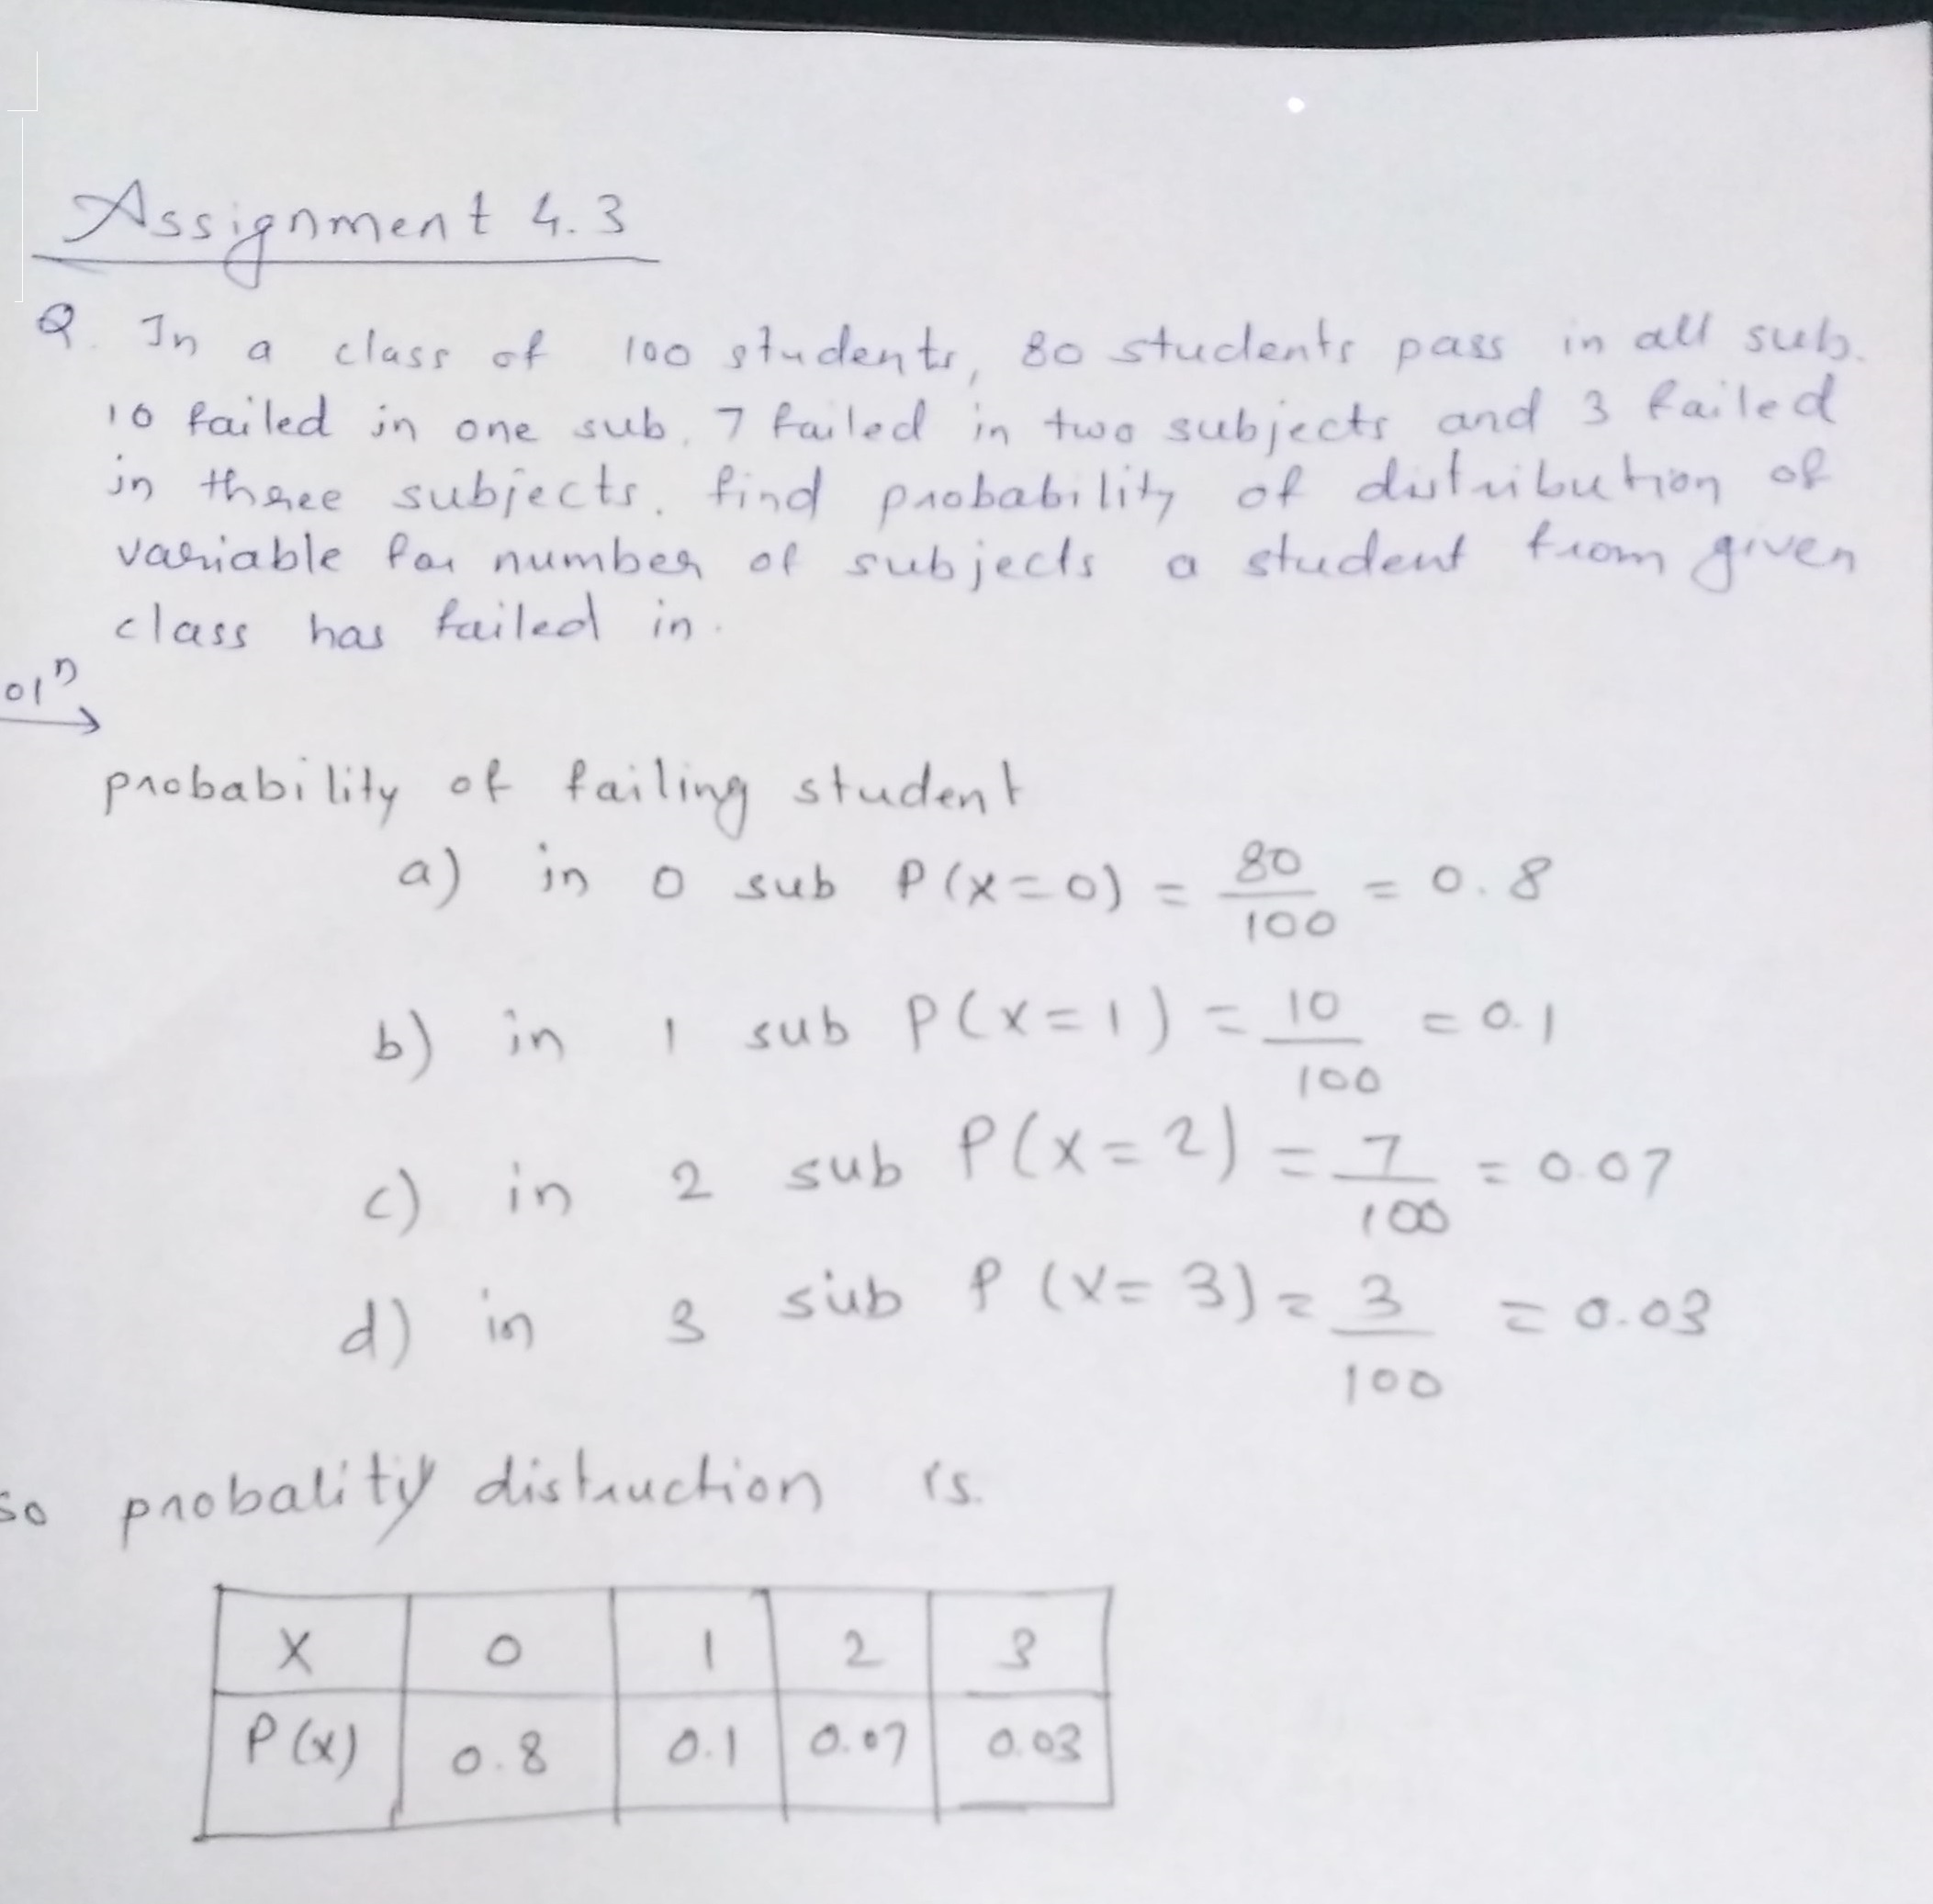 Assignment 4.3
Q. In a class of 100 students, 80 students pass in all sub.
10 failed in one sub, 7 failed in two subjects and 3 failed
in three subjects. find probability of distribution of
variable for number of subjects a student from given
class has failed in.
olⁿ
probability of failing student
a) in 0 sub P(X=0) = 80/100 = 0.8
b) in 1 sub P(X=1) = 10/100 = 0.1
c) in 2 sub P(X=2) = 7/100 = 0.07
d) in 3 sub P(X=3) = 3/100 = 0.03
so probality distruction is.
X 0 1 2 3
P(X) 0.8 0.1 0.07 0.03